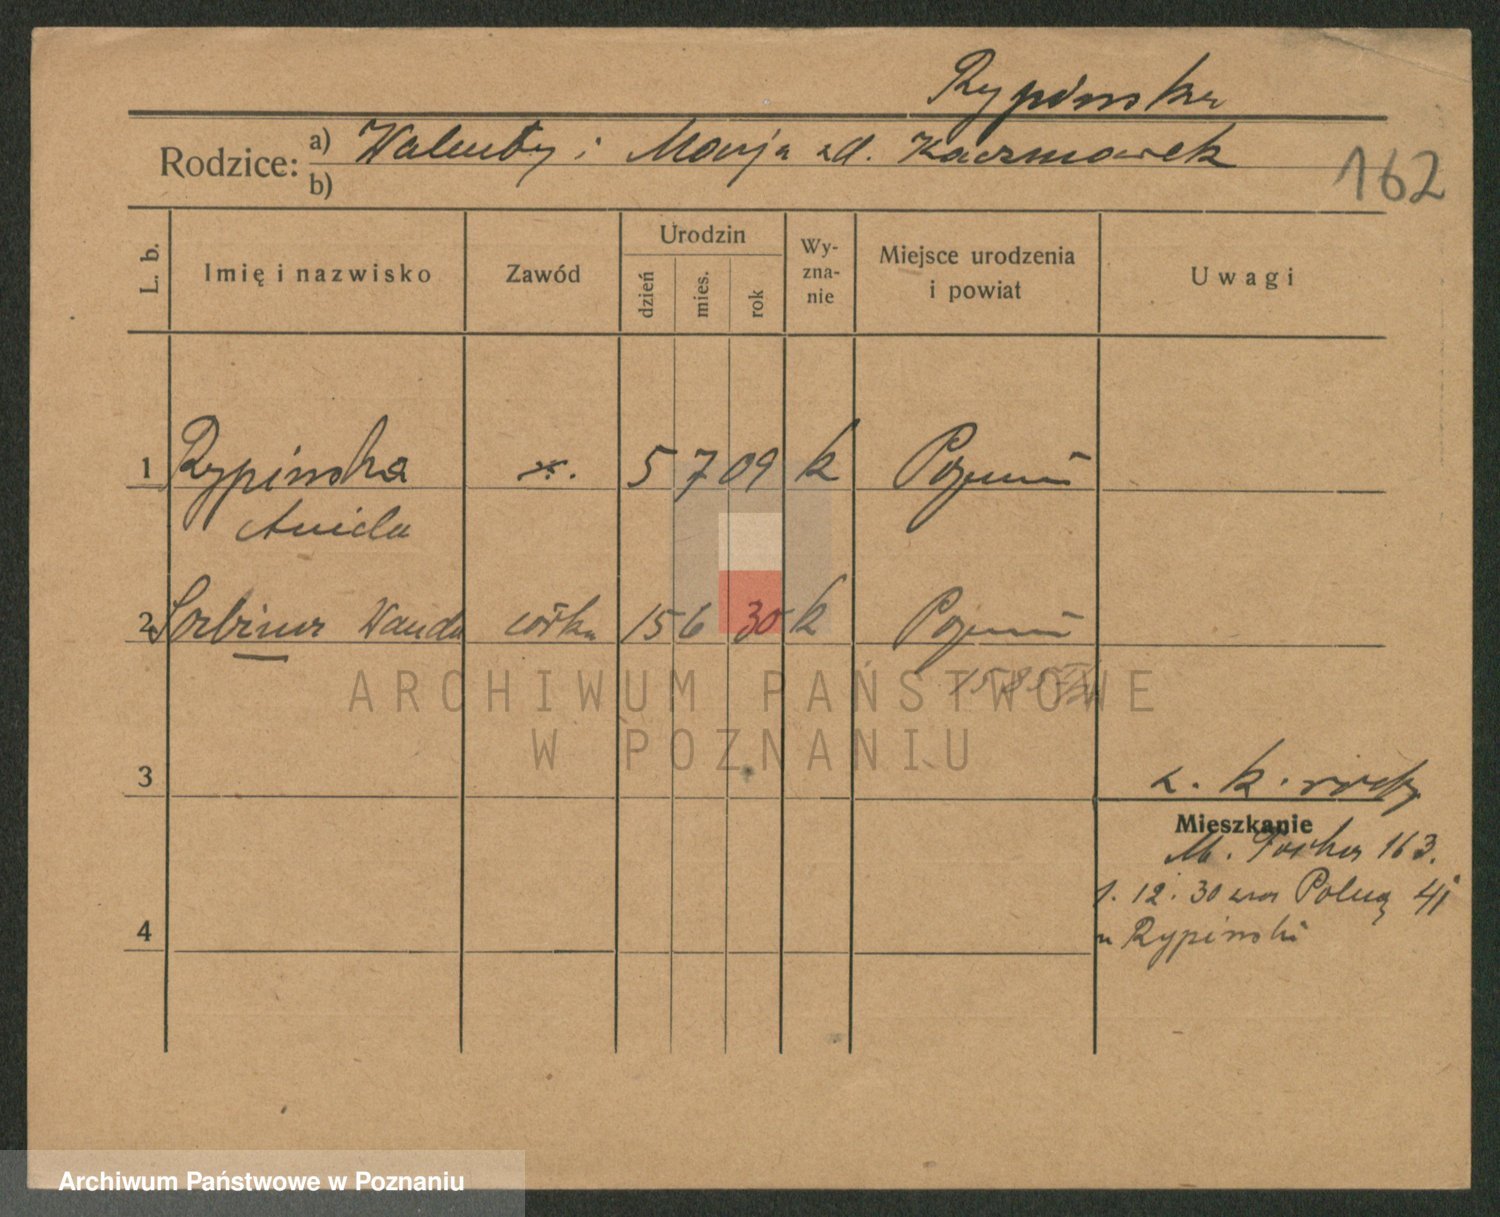 Rypińska
Rodzice: a) Walenty i Marja zd. Kaczmarek
b)
162
L. b.
Imię i nazwisko
Zawód
Urodzin
dzień
mies.
rok
Wy-
zna-
nie
Miejsce urodzenia
i powiat
Uwagi
1 Rypińska 5 7 09 k Poznań
Aniela
2 Wanda córka 15 6 30 k Poznań
ARCHIWUM PAŃSTWOWE
W POZNANIU
3
Mieszkanie
M. Focha 163.
1. 12. 30 Polną 41
u Rypiński
4
Archiwum Państwowe w Poznaniu